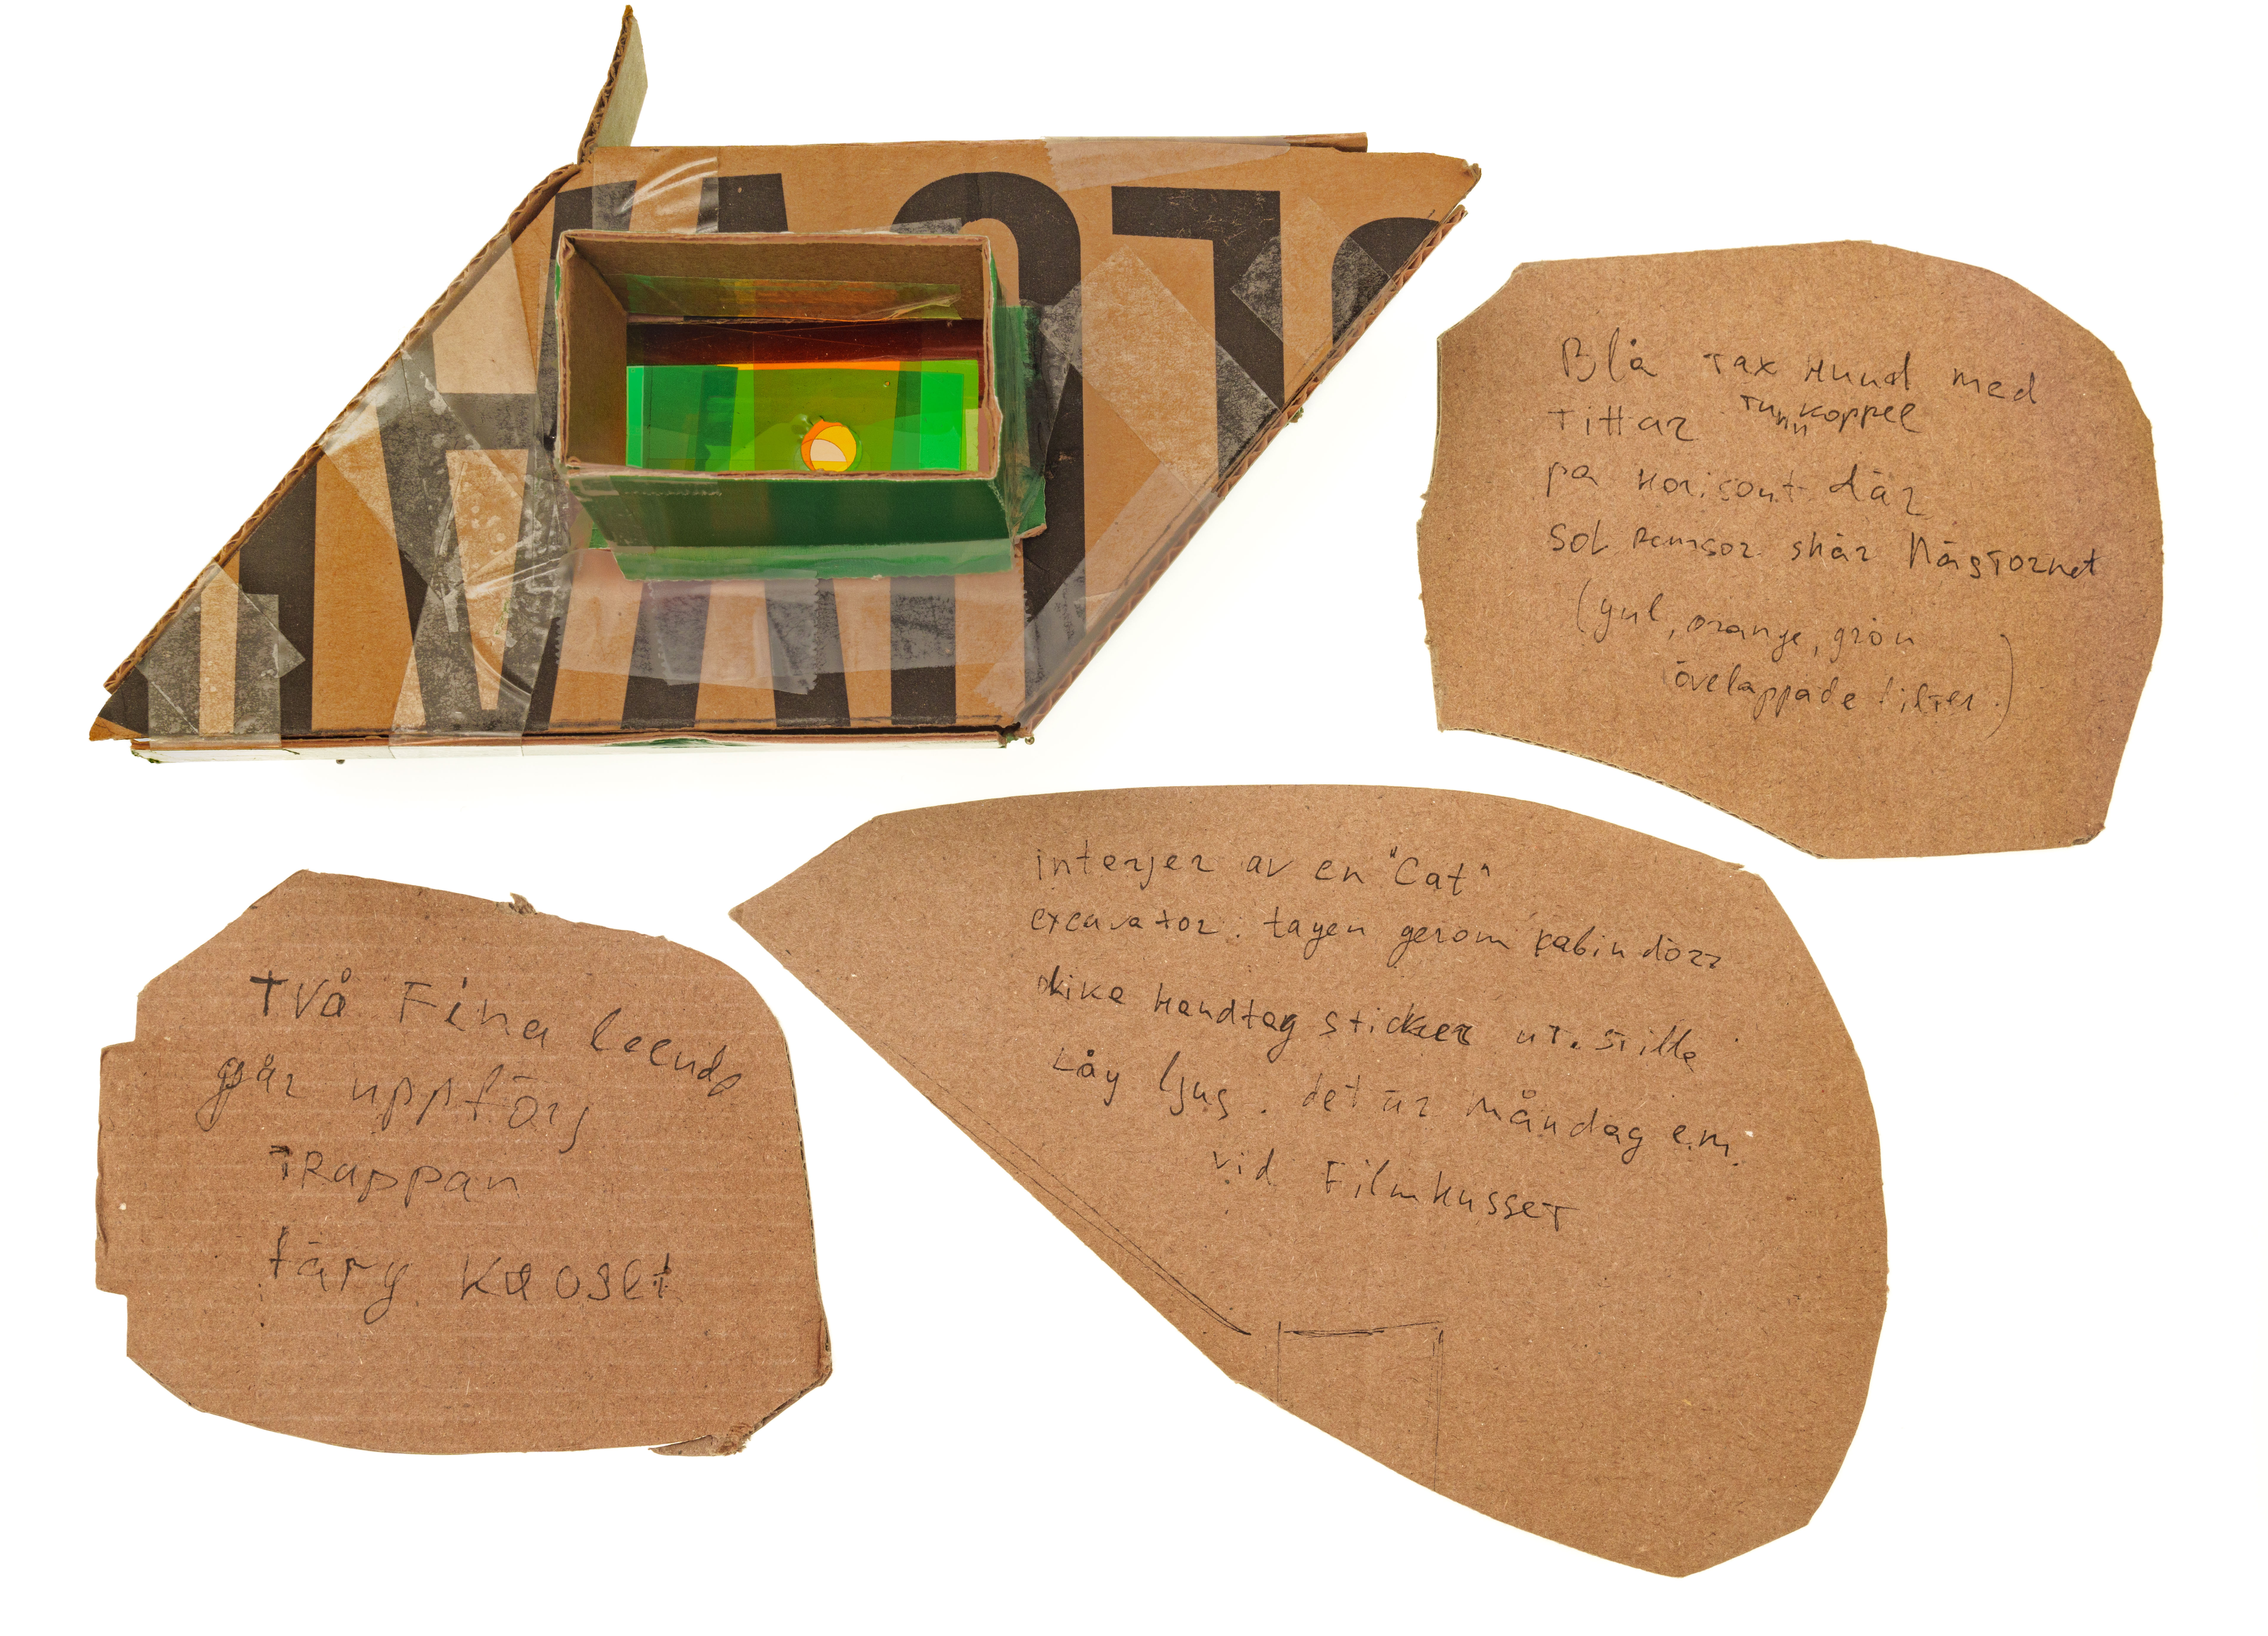 Blå Tax Hund med
Tittar Tunnkoppel
på Horisont där
Sol remsor skär Högtornet
(gul, orange, grön
övelappade filter.)
interjer av en "Cat"
excavator. tagen genom kabin dörr
olika handtag sticker ut. stilla
Låg ljus. det är Måndag e.m.
vid Filmhusset
Två Fina leende
går uppför
TRappan
färg kaoset